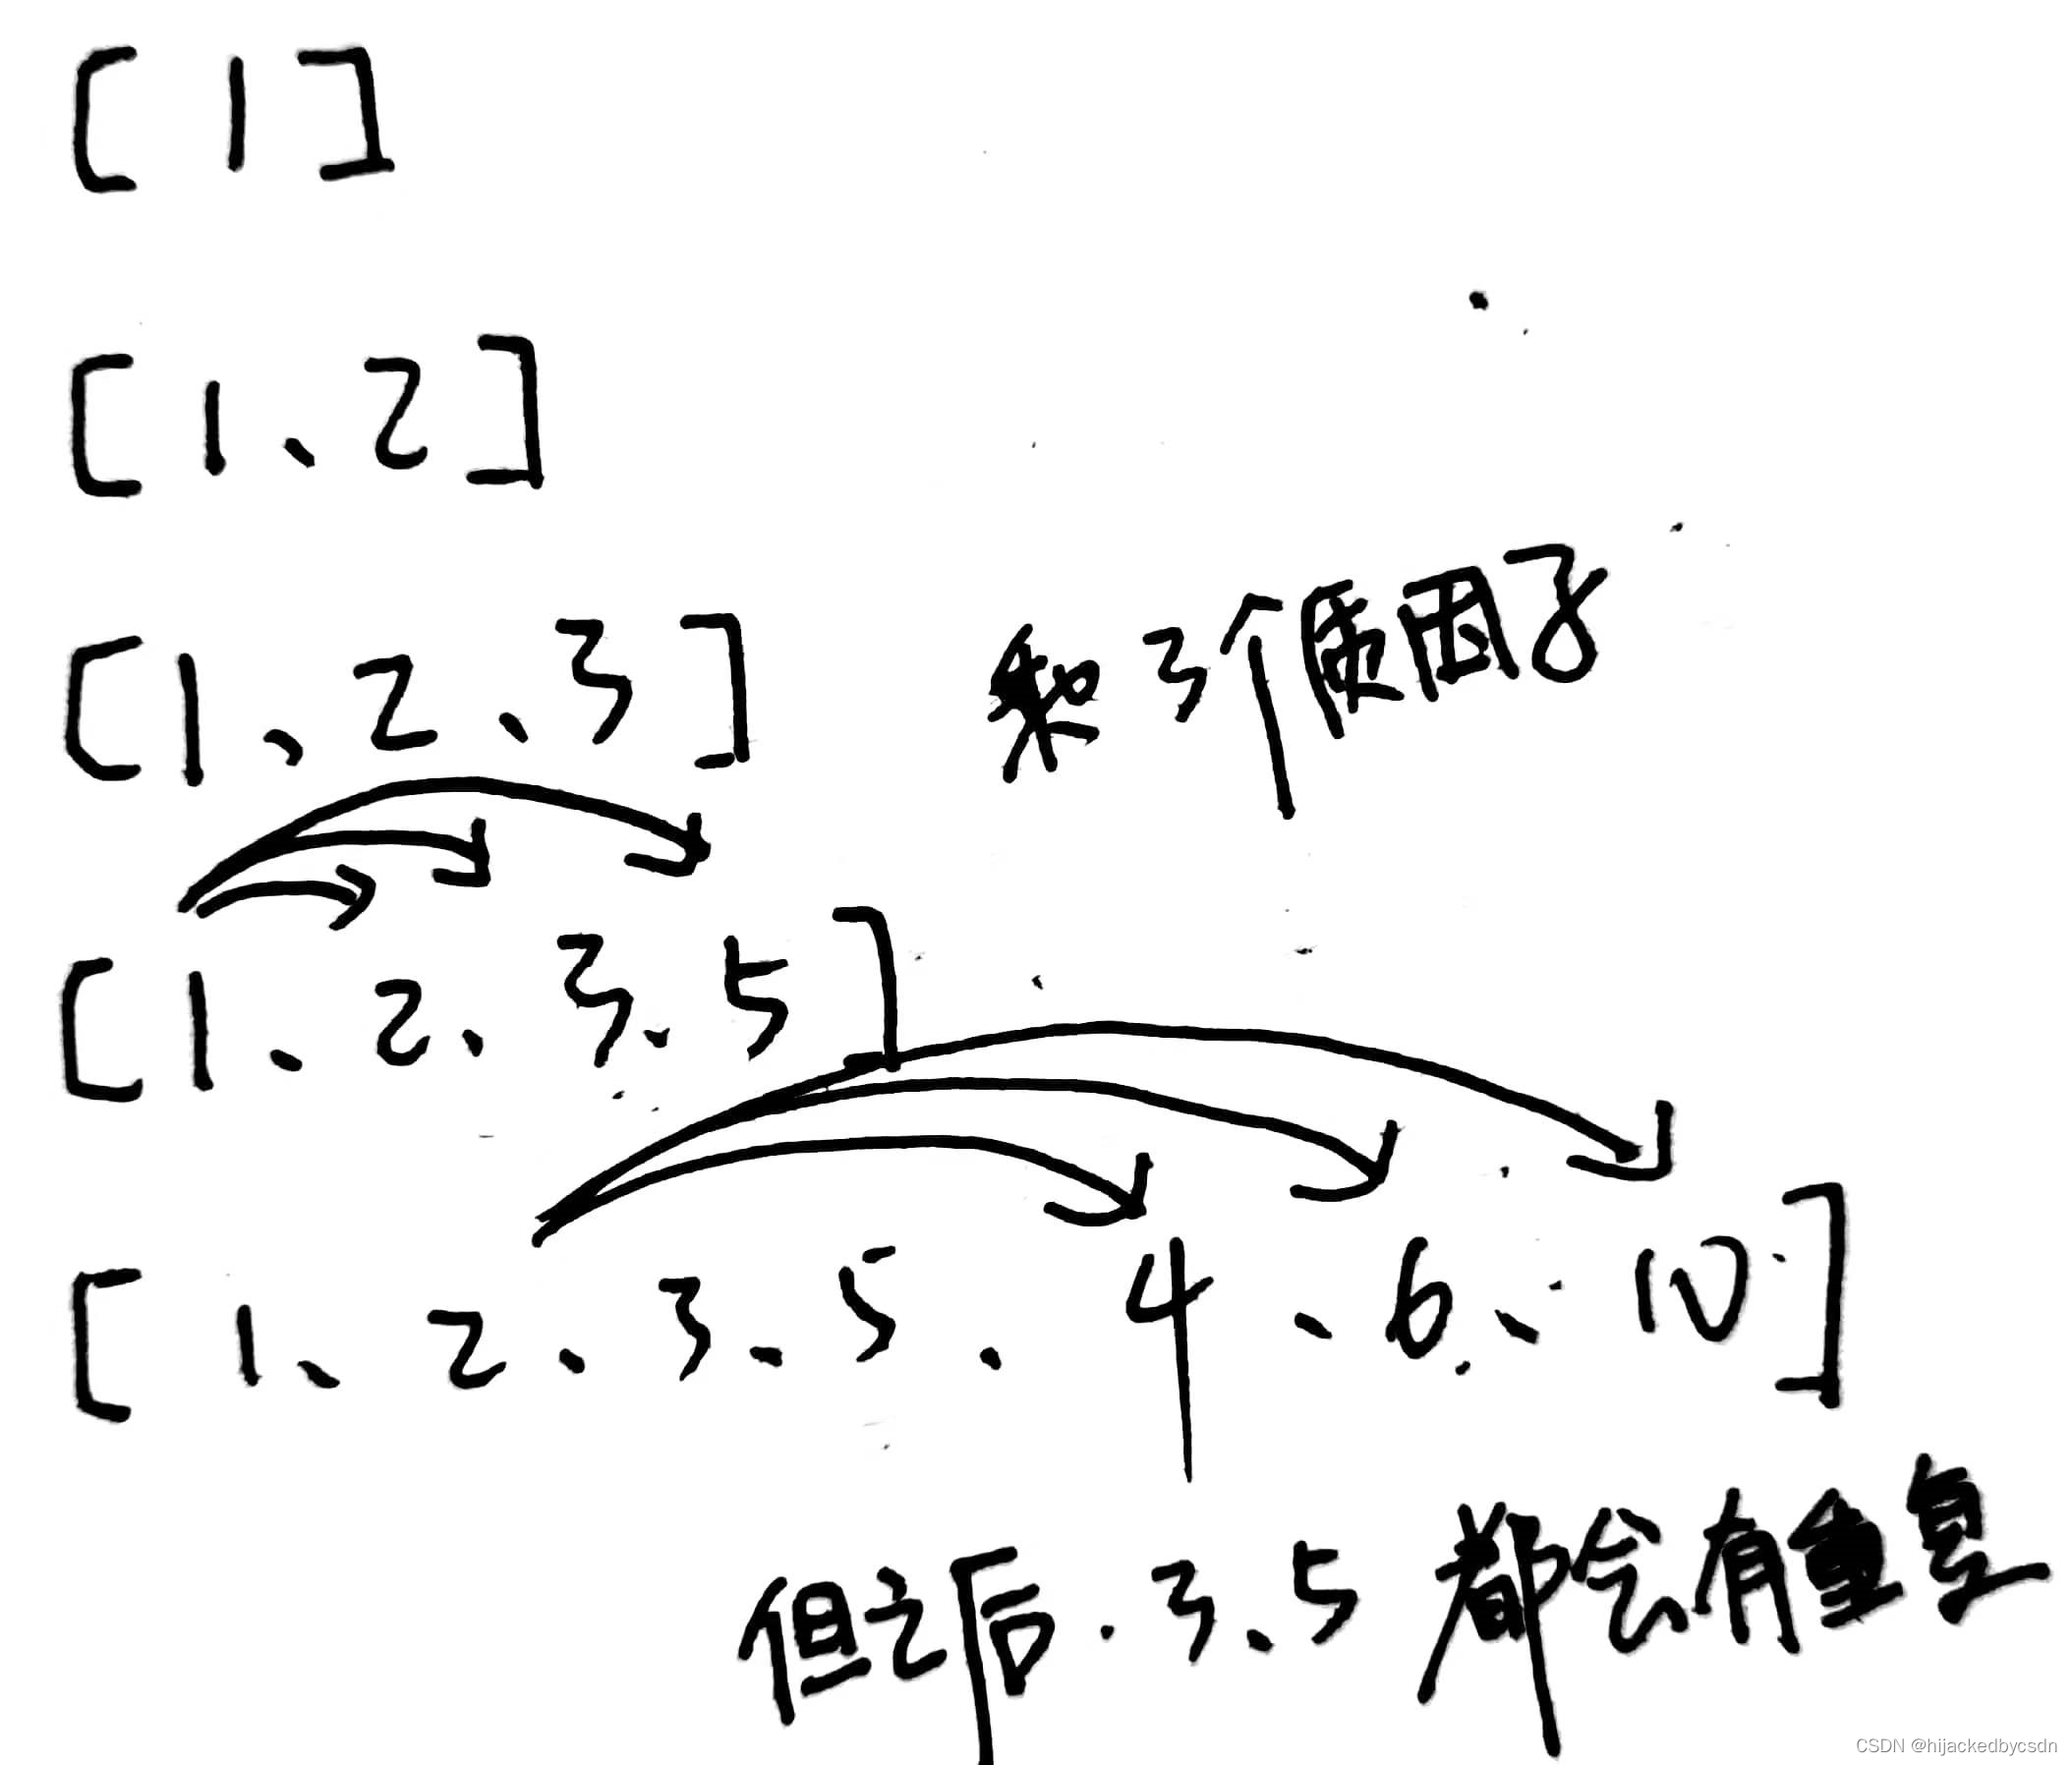 [1]
[1、2]
[1、2、3]
乘3个质因子
[1、2、3、5]
[1、2、3、5、4、6、10]
但之后、3、5都会有重复
CSDN @hijackedbycsdn